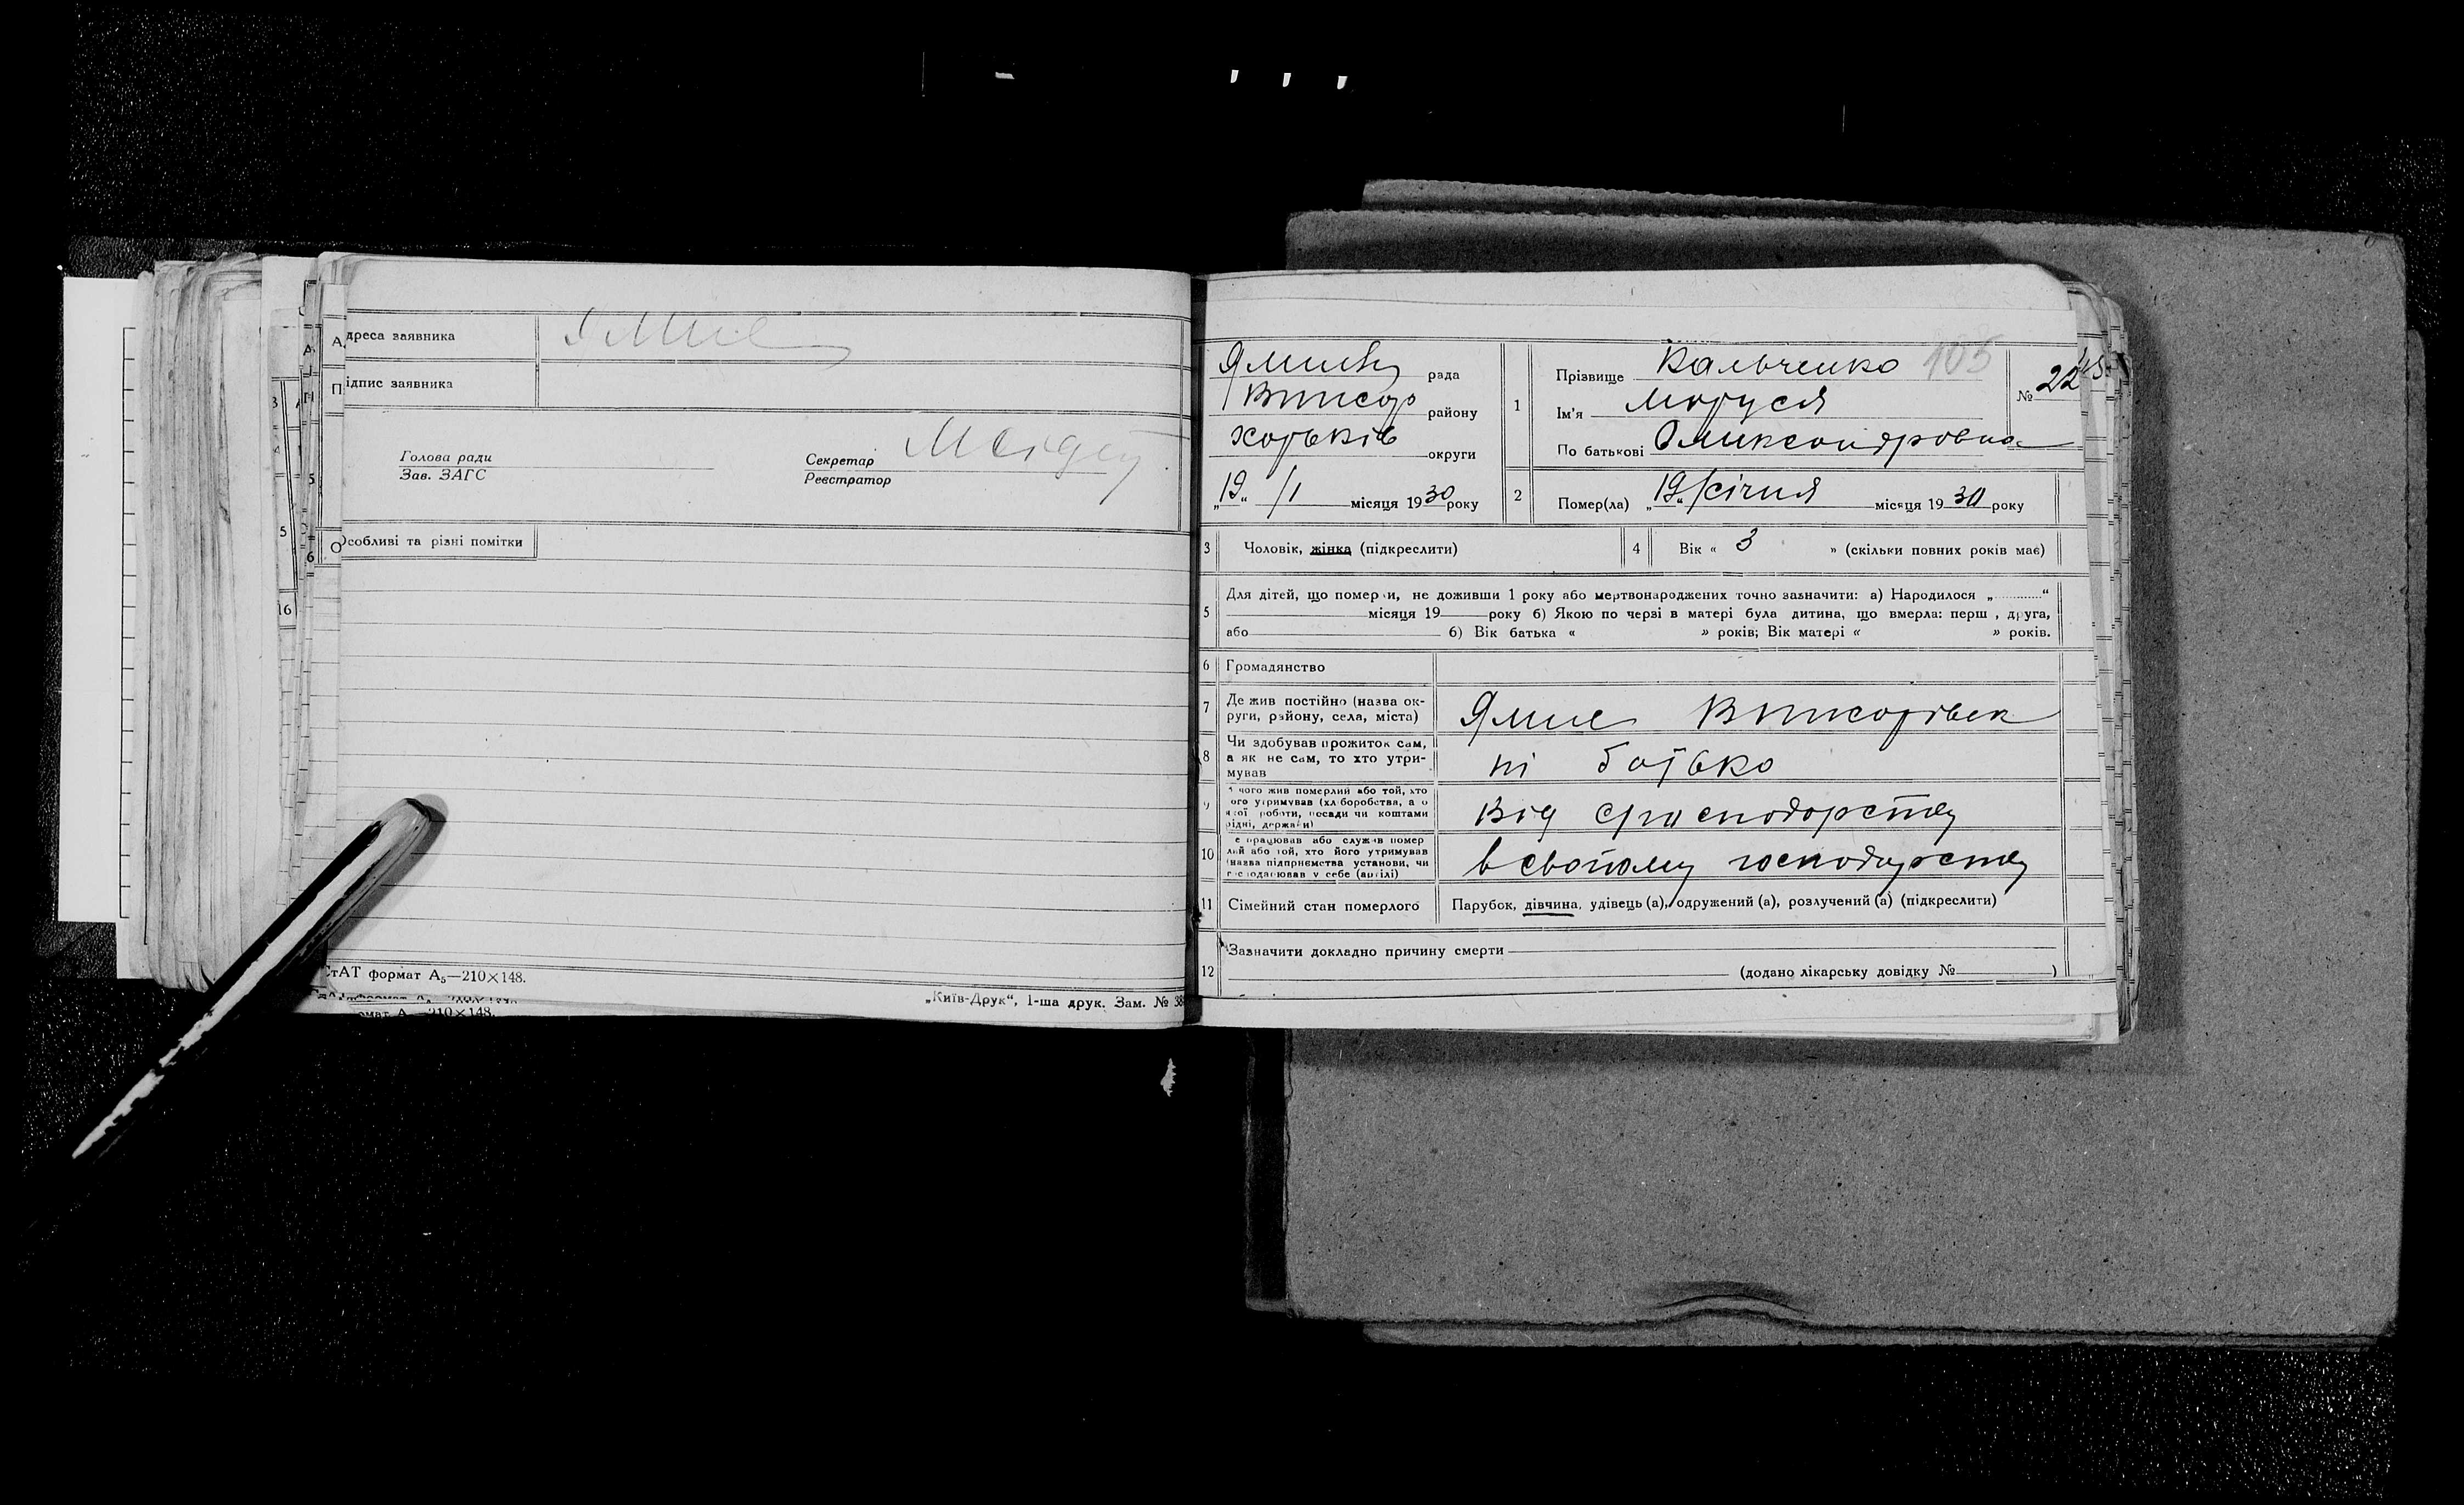 Адреса заявника
Підпис заявника
Голова ради
Зав. ЗАГС
Секретар
Реєстратор
Особливі та різні помітки
СтАТ формат А₅—210×148.
„Київ-Друк“, 1-ша друк. Зам. № 38
рада
району
Харьків округи
„19“ /1 місяця 1930 року
1
Прізвище Кальченко 105
Ім'я Маруся
По батькові Олександровна
№ 22
2 Помер(ла) „19“ січня місяця 1930 року
3 Чоловік, жінка (підкреслити)
4 Вік « 3 » (скільки повних років має)
5 Для дітей, що померли, не доживши 1 року або мертвонароджених точно зазначити: а) Народилося „ “
місяця 19 року б) Якою по черзі в матері була дитина, що вмерла: перш , друга,
або б) Вік батька « » років; Вік матері « » років.
6 Громадянство
7 Де жив постійно (назва ок-
руги, району, села, міста)
8 Чи здобував прожиток сам,
а як не сам, то хто утри-
мував
ні батько
9 чого жив померлий або той, хто
ого утримував (хліборобства, а о
якої роботи, посади чи коштами
рідні, держави)
Від
10 е працював або служив помер
лий або той, хто його утримував
(назва підприємства установи, чи
господарював у себе (артілі)
в свойому господарстві
11 Сімейний стан померлого Парубок, дівчина, удівець (а), одружений (а), розлучений (а) (підкреслити)
12 Зазначити докладно причину смерти
(додано лікарську довідку № )